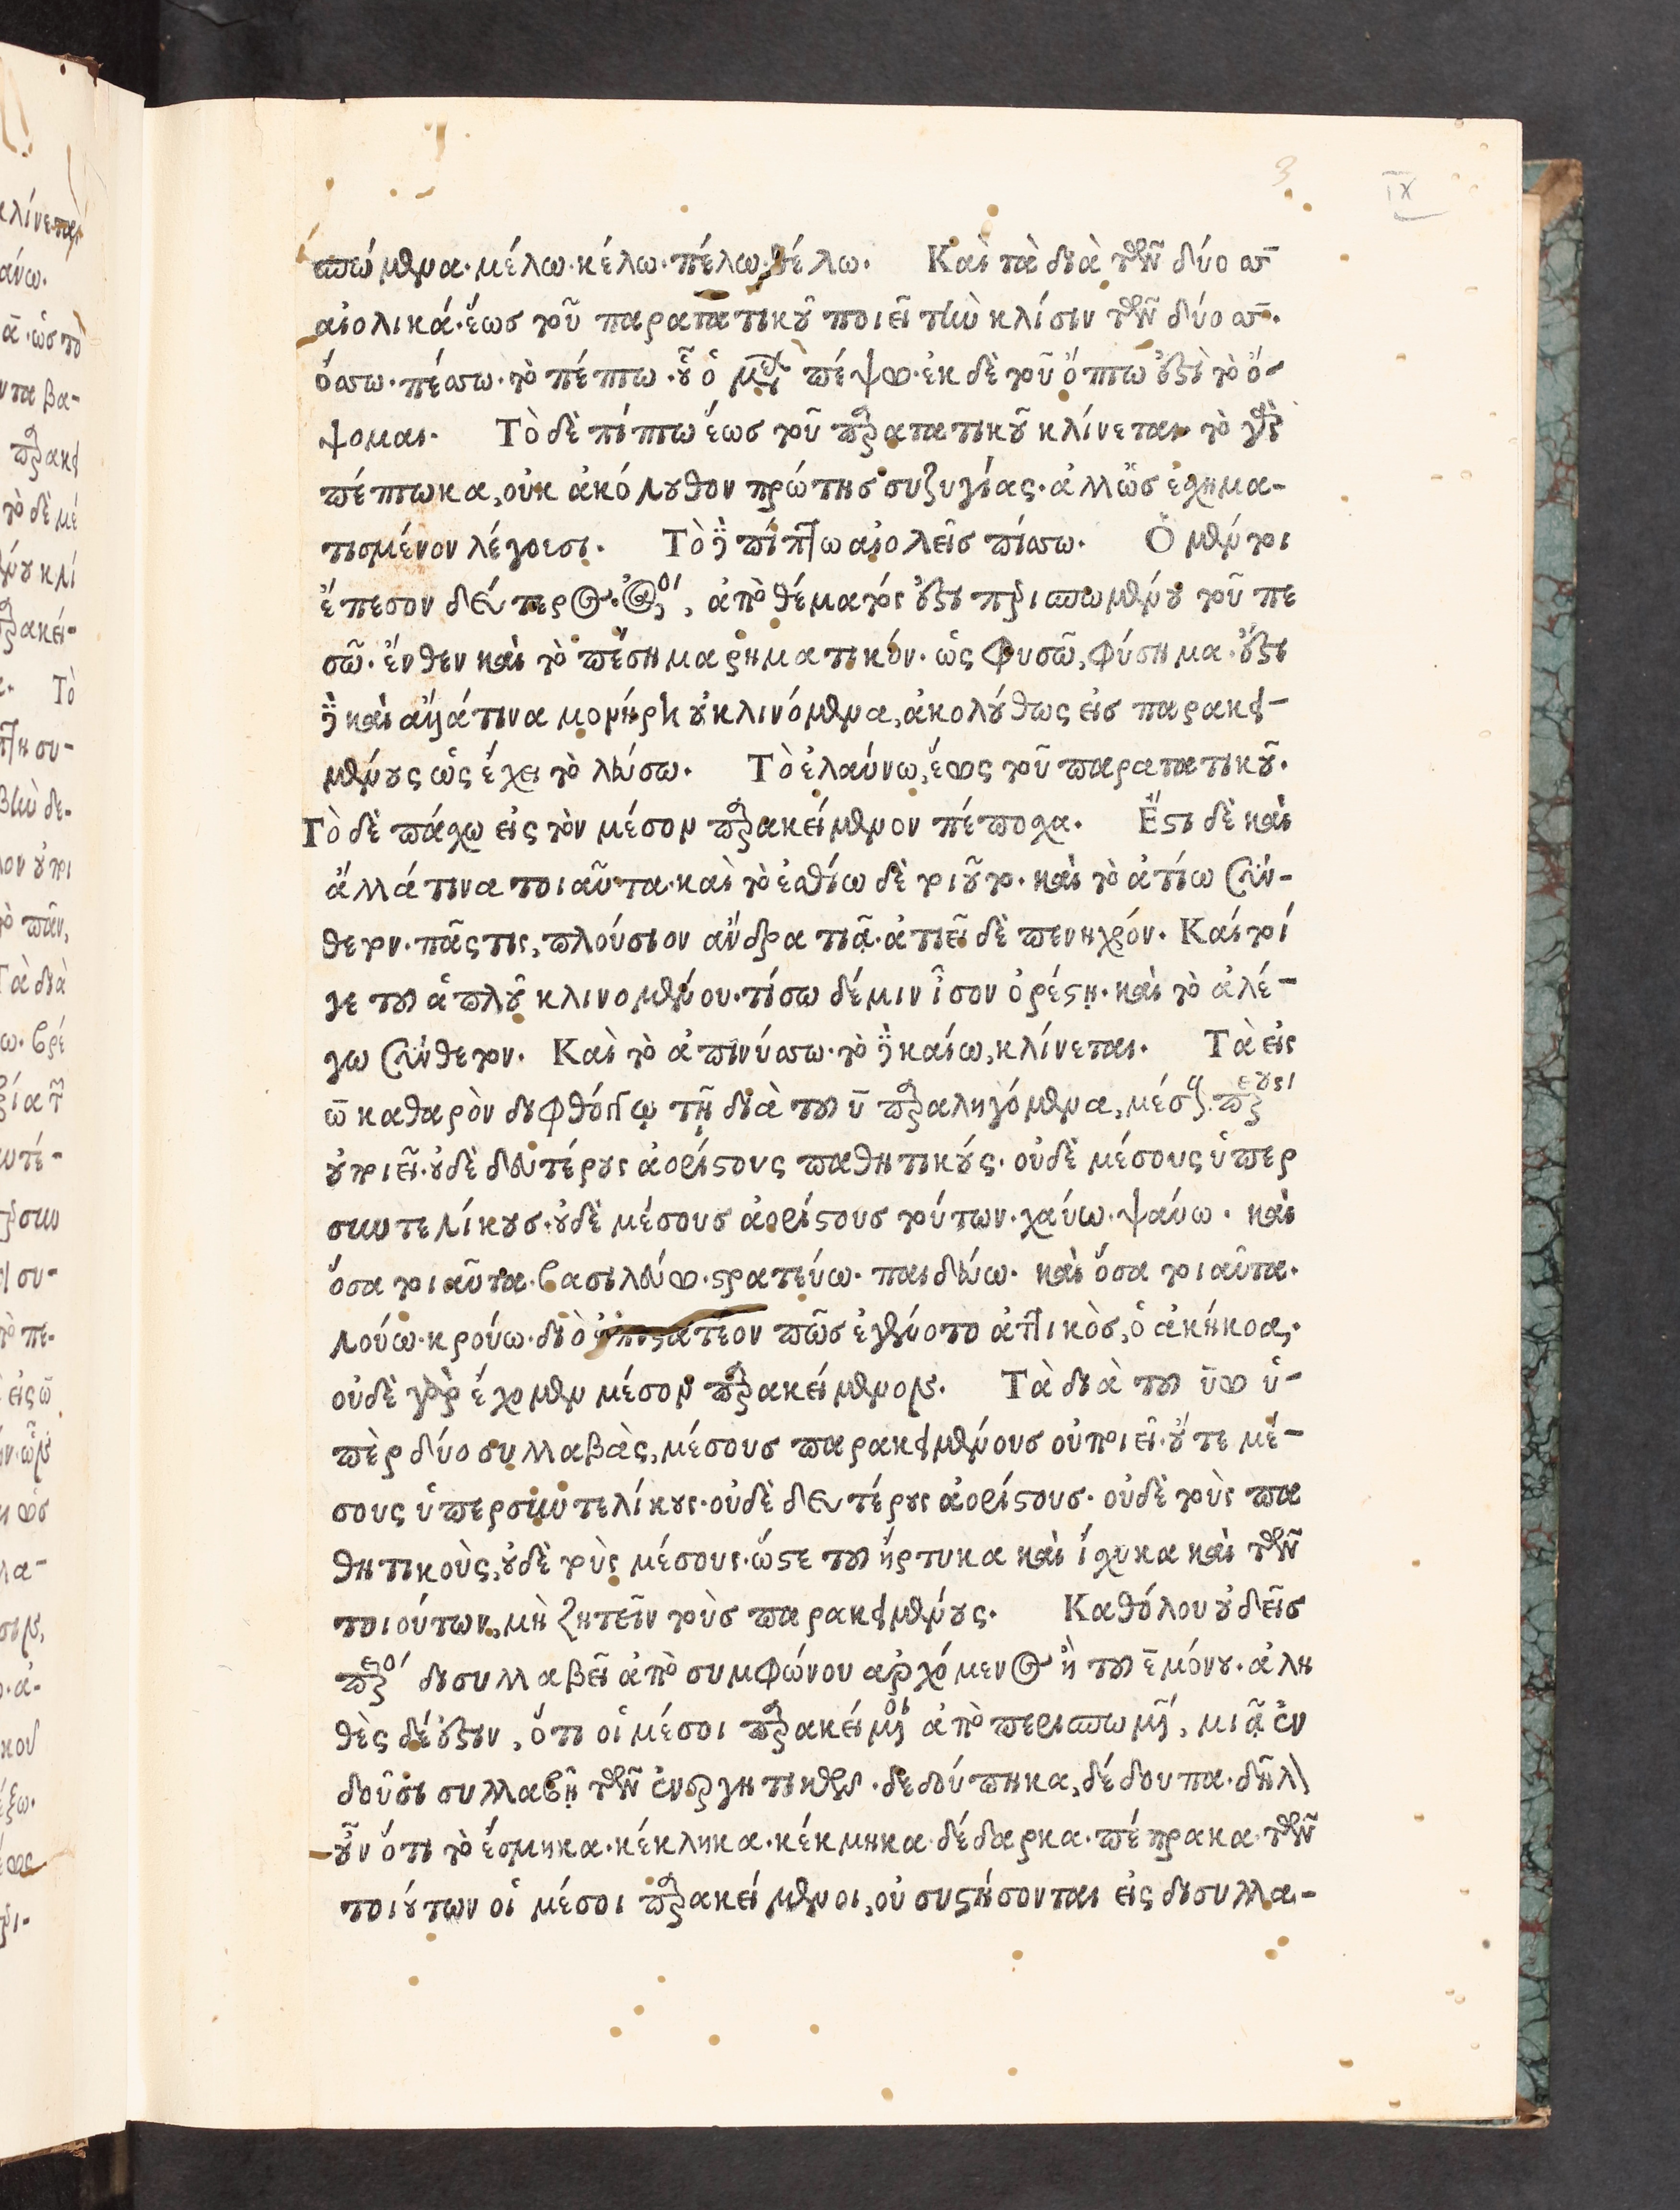 σπώμενα· μέλω· κέλω· πέλω· θέλω. Καὶ τὰ διὰ τῶν δύο σσ
αἰολικά· ἕως τοῦ παρατατικοῦ ποιεῖ τὴν κλίσιν τῶν δύο σσ.
ὄσσω· πέσσω· τὸ πέπτω· οὗ ὁ μέλλων πέψω· ἐκ δὲ τοῦ ὄπτω ἐστὶ τὸ ὄ-
ψομαι. Τὸ δὲ πίπτω ἕως τοῦ παρατατικοῦ κλίνεται· τὸ γὰρ
πέπτωκα, οὐκ ἀκόλουθον πρώτης συζυγίας· ἄλλως ἐσχημα-
τισμένον λέγουσι. Τὸ δὲ πίπτω αἰολεῖς πίσσω. Ὁ μέντοι
ἔπεσον δεύτερος ἀόριστος, ἀπὸ θέματός ἐστι περισπωμένου τοῦ πε
σῶ· ἔνθεν καὶ τὸ πέσημα ῥηματικόν· ὡς φυσῶ, φύσημα· ἔστι
δὲ καὶ ἄλλά τινα μονήρη οὐ κλινόμενα, ἀκολούθως εἰς παρακει-
μένους ὡς ἔχει τὸ λεύσω. Τὸ ἐλαύνω, ἕως τοῦ παρατατικοῦ.
Τὸ δὲ πάσχω εἰς τὸν μέσον παρακείμενον πέποσχα. Ἔστι δὲ καὶ
ἄλλά τινα τοιαῦτα· καὶ τὸ ἐσθίω δὲ τοιοῦτο· καὶ τὸ ἀτίω σύν-
θετον· πᾶς τις, πλούσιον ἄνδρα τιᾷ· ἀτιεῖ δὲ πενιχρόν. Καίτοί
γε τοῦ ἁπλοῦ κλινομένου· τίσω δέ μιν ἶσον ὀρέστῃ· καὶ τὸ ἀλέ-
γω σύνθετον. Καὶ τὸ ἀπινύσσω· τὸ δὲ καίω, κλίνεται. Τὰ εἰς
ω καθαρὸν διφθόγγῳ τῇ διὰ τοῦ υ παραληγόμενα, μέσους παρακειμένους
οὐ ποιεῖ· οὐδὲ δευτέρους ἀορίστους παθητικούς· οὐδὲ μέσους ὑπερ
συντελίκους· οὐδὲ μέσους ἀορίστους τούτων· χαύω· ψαύω· καὶ
ὅσα τοιαῦτα· βασιλεύω· στρατεύω· παιδεύω· καὶ ὅσα τοιαῦτα.
λούω· κρούω· διὸ ἐπιστατέον πῶς ἐγένοτο ἀττικὸς, ὁ ἀκήκοα,.
οὐδὲ γὰρ ἔχομεν μέσον παρακείμενον. Τὰ διὰ τοῦ ύω ὑ-
πὲρ δύο συλλαβὰς, μέσους παρακειμένους οὐ ποιεῖ· οὔτε μέ-
σους ὑπερσυντελίκους· οὐδὲ δευτέρους ἀορίστους· οὐδὲ τοὺς πα
θητικοὺς, οὐδὲ τοὺς μέσους· ὥστε τοῦ ἤρτυκα καὶ ἴσχυκα καὶ τῶν
τοιούτων, μὴ ζητεῖν τοὺς παρακειμένους. Καθόλου οὐδεὶς
παρακείμενος δισυλλαβεῖ ἀπὸ συμφώνου ἀρχόμενος ἢ τοῦ ε μόνου· ἀλη
θὲς δέ ἐστιν, ὅτι οἱ μέσοι παρακείμενοι ἀπὸ περισπωμένων, μιᾷ ἐν
δοῦσι συλλαβῇ τῶν ἐνεργητικῶν· δεδούπηκα, δέδουπα· δῆλον
οὖν ὅτι τὸ ἔσμηκα· κέκληκα· κέκμηκα· δέδαρκα· πέπρακα· τῶν
τοιούτων οἱ μέσοι παρακείμενοι, οὐ συστήσονται εἰς δισυλλα-